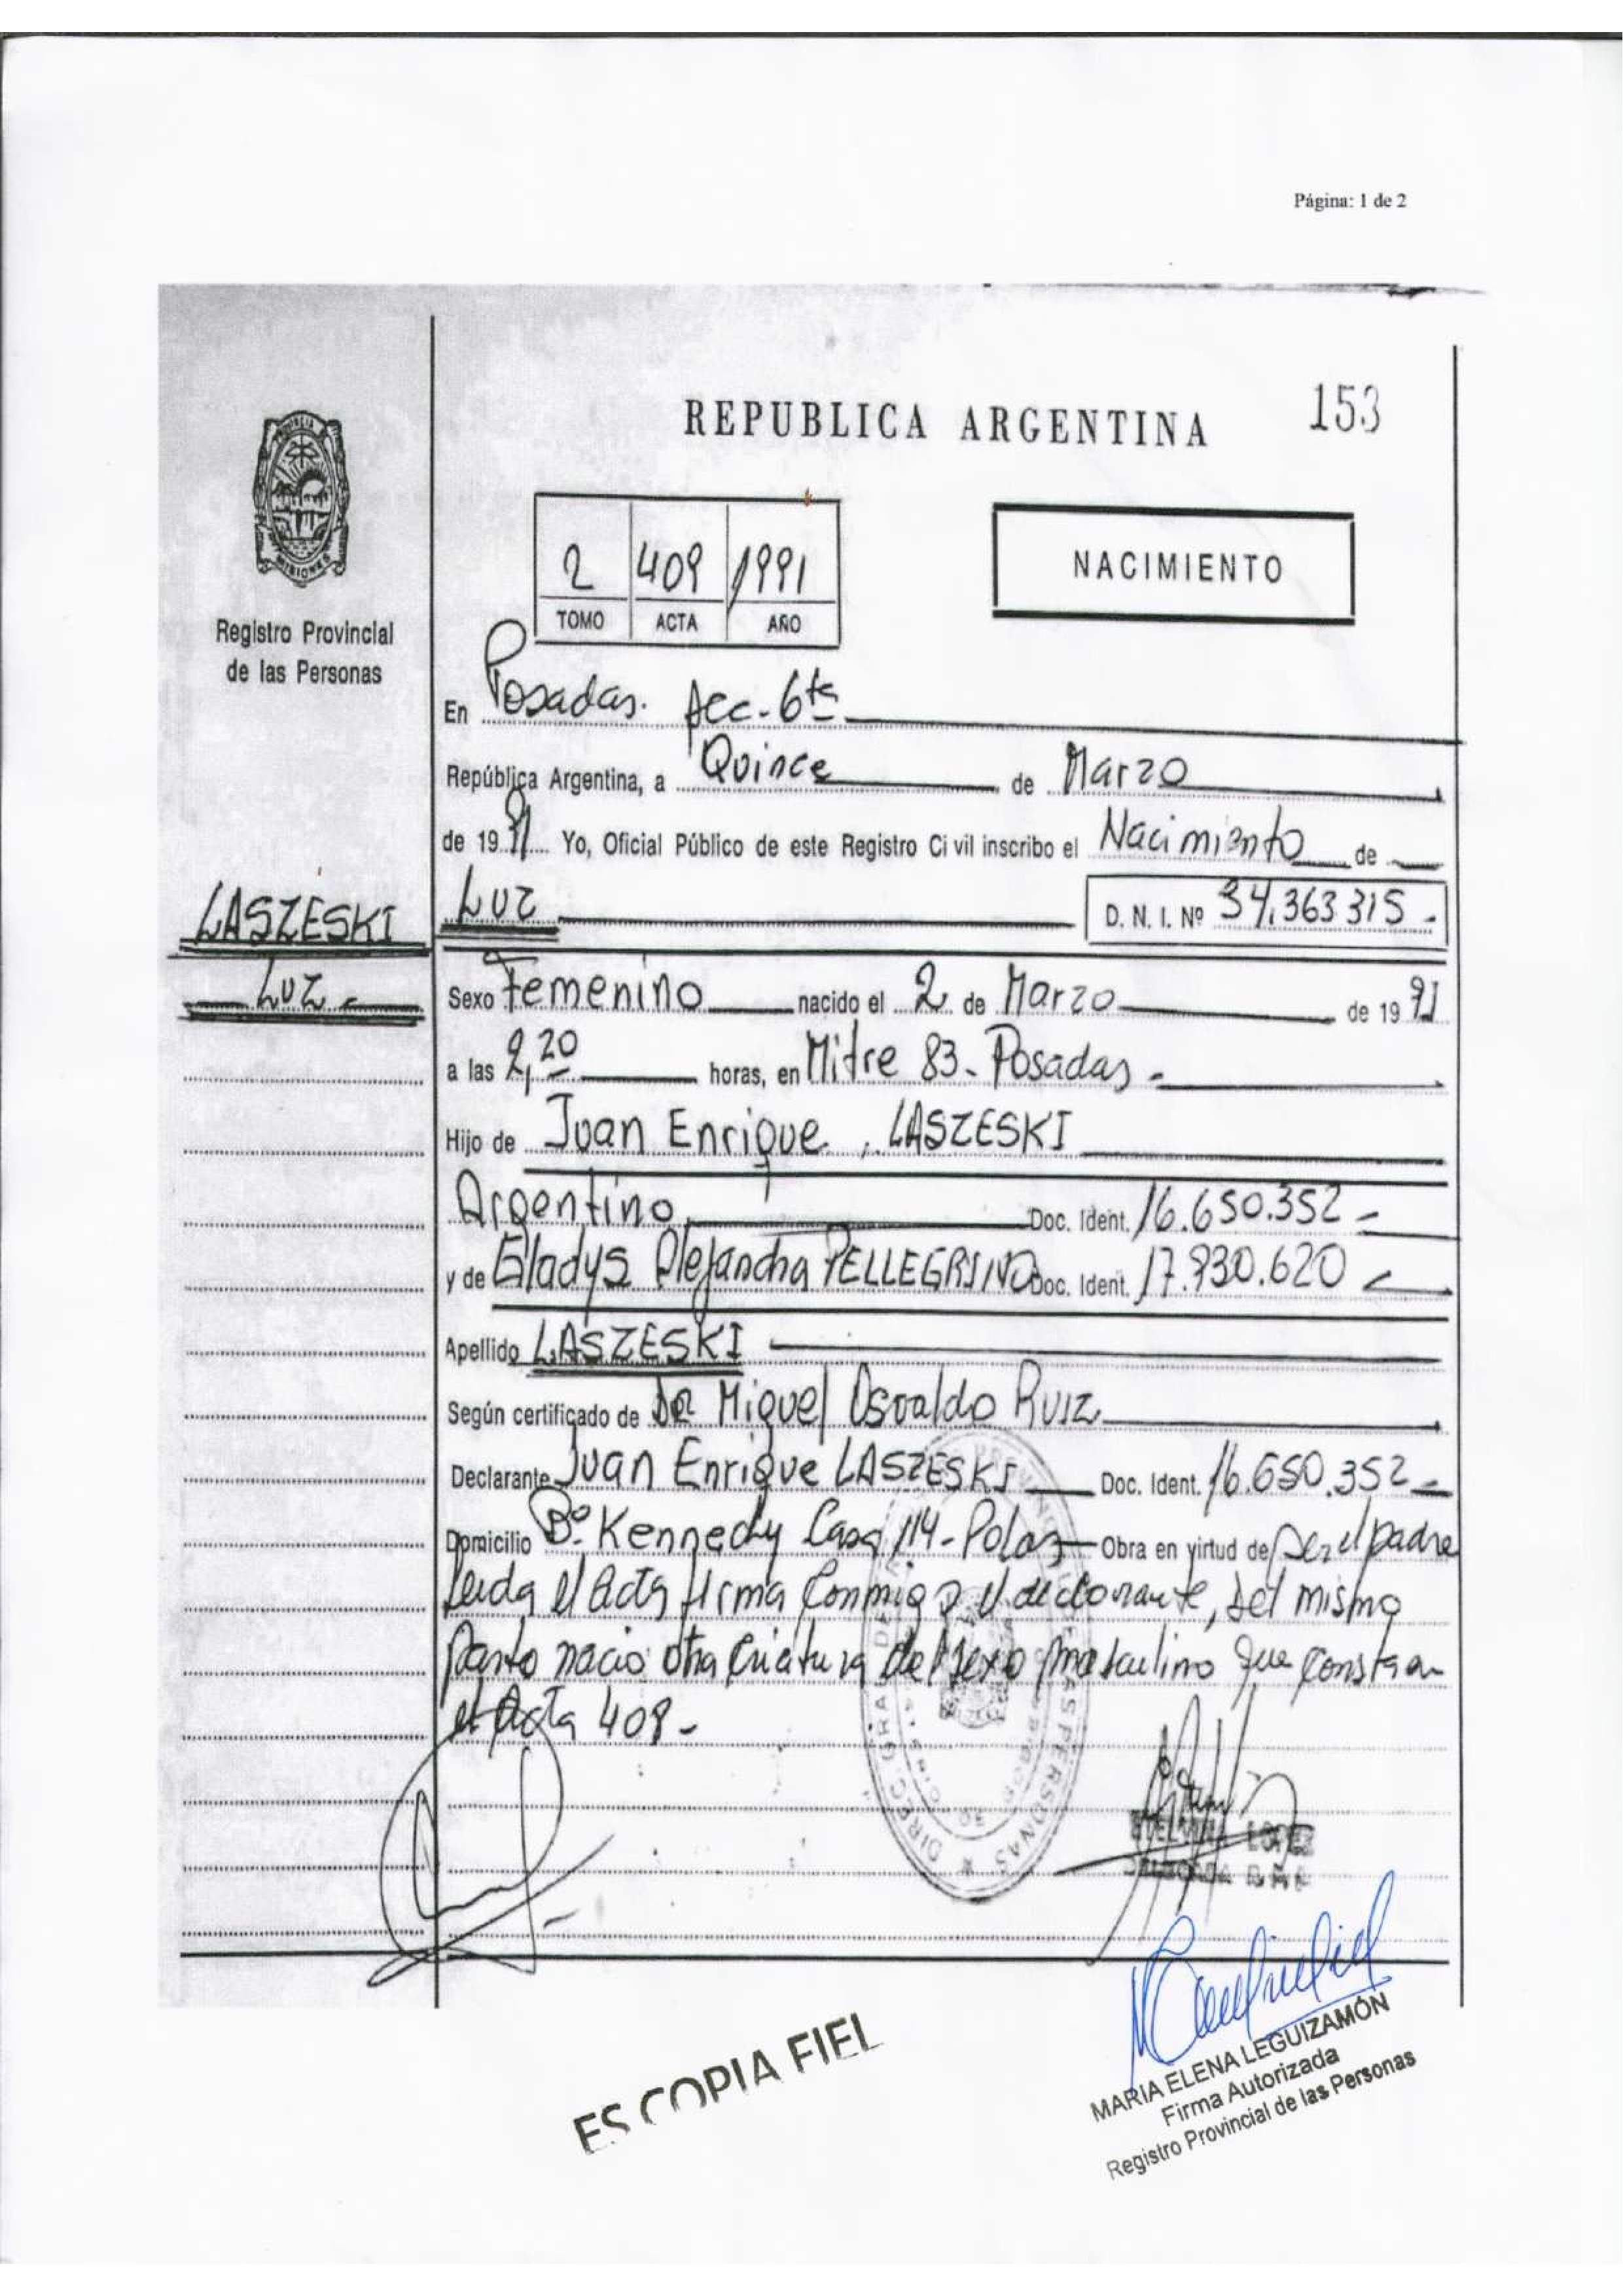 Página: 1 de 2
REPUBLICA ARGENTINA
153
PROVINCIA
MISIONES
Registro Provincial
de las Personas
2 409 1991
TOMO ACTA AÑO
NACIMIENTO
En Posadas. Secc. 6ta
República Argentina, a Quince de Marzo
de 1991 Yo, Oficial Público de este Registro Civil inscribo el Nacimiento de
LASZESKI
Luz
Luz D. N. I. Nº 34.363.315.-
Sexo Femenino nacido el 2 de Marzo de 1991
a las 2,20 horas, en Mitre 83 - Posadas -
Hijo de Juan Enrique, LASZESKI
Argentino Doc. Ident. 16.650.352 -
y de Gladys Alejandra PELLEGRINO Doc. Ident. 17.930.620
Apellido LASZESKI
Según certificado de DR Miguel Osvaldo Ruiz
Declarante Juan Enrique LASZESKI Doc. Ident. 16.650.352 -
Domicilio Bº Kennedy Casa 114 - Pdas Obra en virtud de ser el padre
leida el acta firma conmigo el declarante, del mismo
parto nacio otra criatura del sexo masculino que consta en
el Acta 408 -
ETELVINA LOPEZ
DELEGADA R.P.P.
ES COPIA FIEL
MARIA ELENA LEGUIZAMÓN
Firma Autorizada
Registro Provincial de las Personas